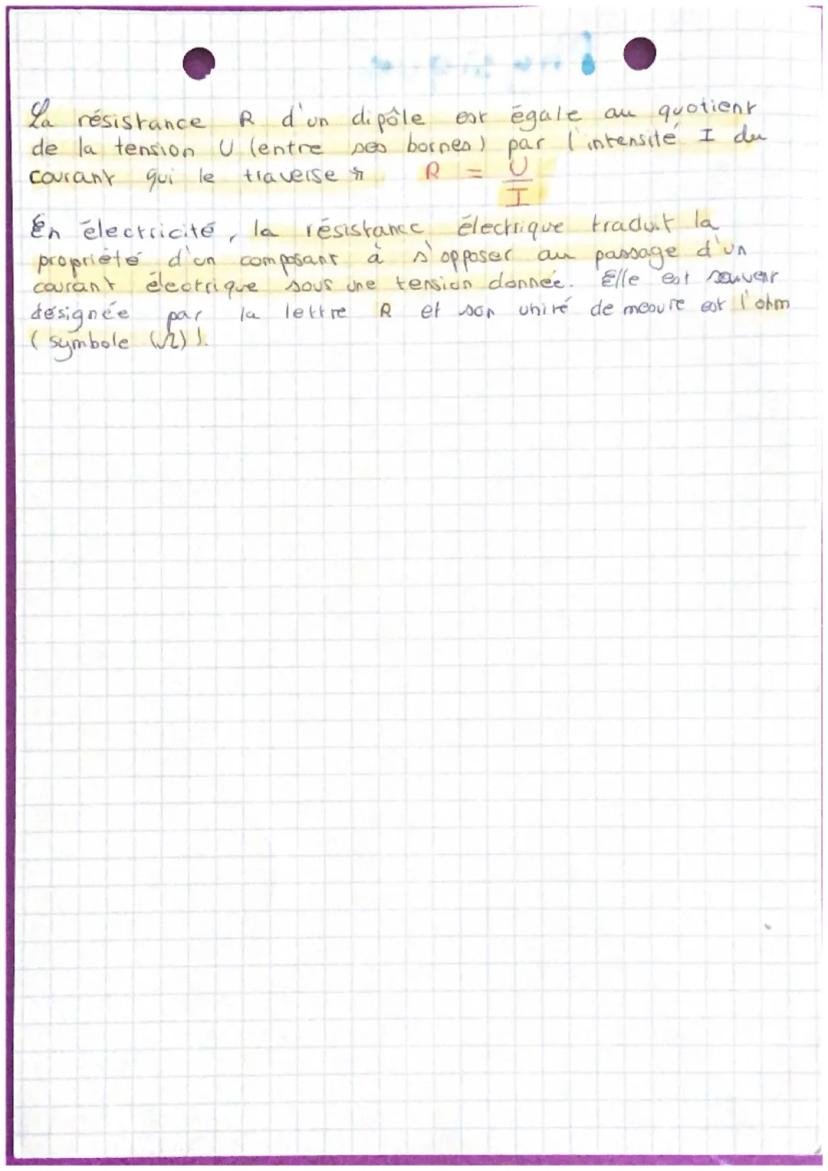 La résistance R d'un dipôle est égale au quotient
de la tension U (entre ses bornes) par l'intensité I du
courant qui le traverse R = U/I
En électricité, la résistance électrique traduit la
propriété d'un composant à s'opposer au passage d'un
courant électrique sous une tension donnée. Elle est souvent
désignée par la lettre R et son unité de mesure est l'ohm
(symbole (Ω)).